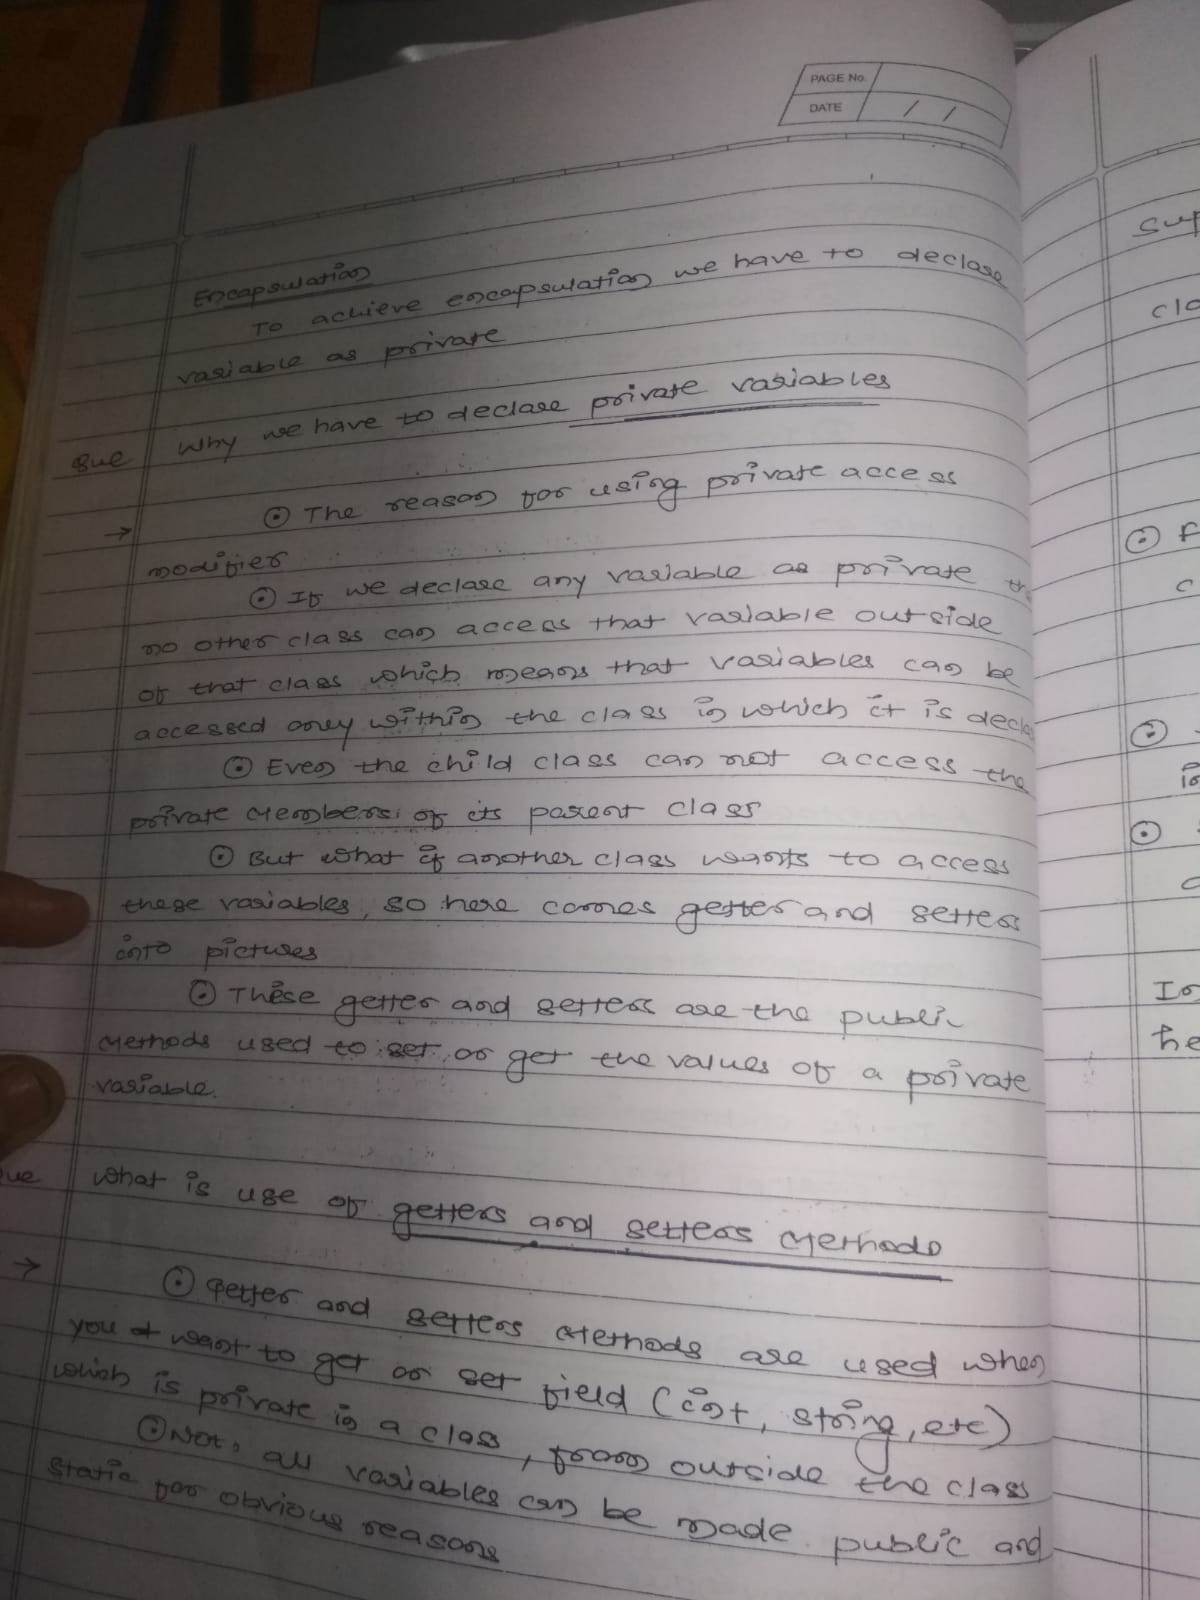 PAGE No.
DATE / /
Encapsulation
To achieve encapsulation we have to declare
variable as private
Que Why we have to declare private variables
→ ⊙ The reason for using private access
modifier
⊙ If we declare any variable as private
no other class can access that variable outside
of that class which means that variables can be
accessed only within the class in which it is decla
⊙ Even the child class can not access the
private members of its parent class
⊙ But what if another class wants to access
these variables, so here comes getter and setters
into pictures
⊙ These getter and setters are the public
methods used to set or get the values of a private
variable.
ue what is use of getters and setters methods
→ ⊙ Getter and setters methods are used when
you want to get or set field (int, string, etc)
which is private in a class, from outside the class
⊙ Not, all variables can be made public and
static for obvious reasons
sup
cla
⊙ F
c
⊙
in
⊙
In
he